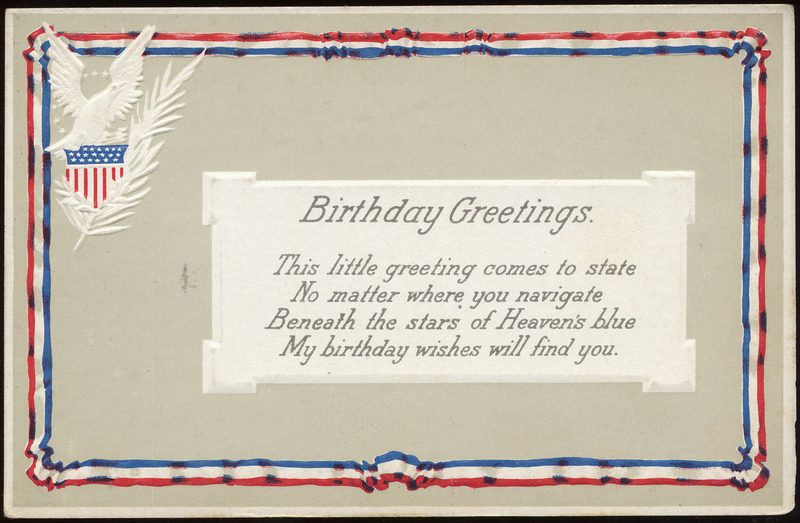 Birthday Greetings.
This little greeting comes to state
No matter where you navigate
Beneath the stars of Heaven's blue
My birthday wishes will find you.